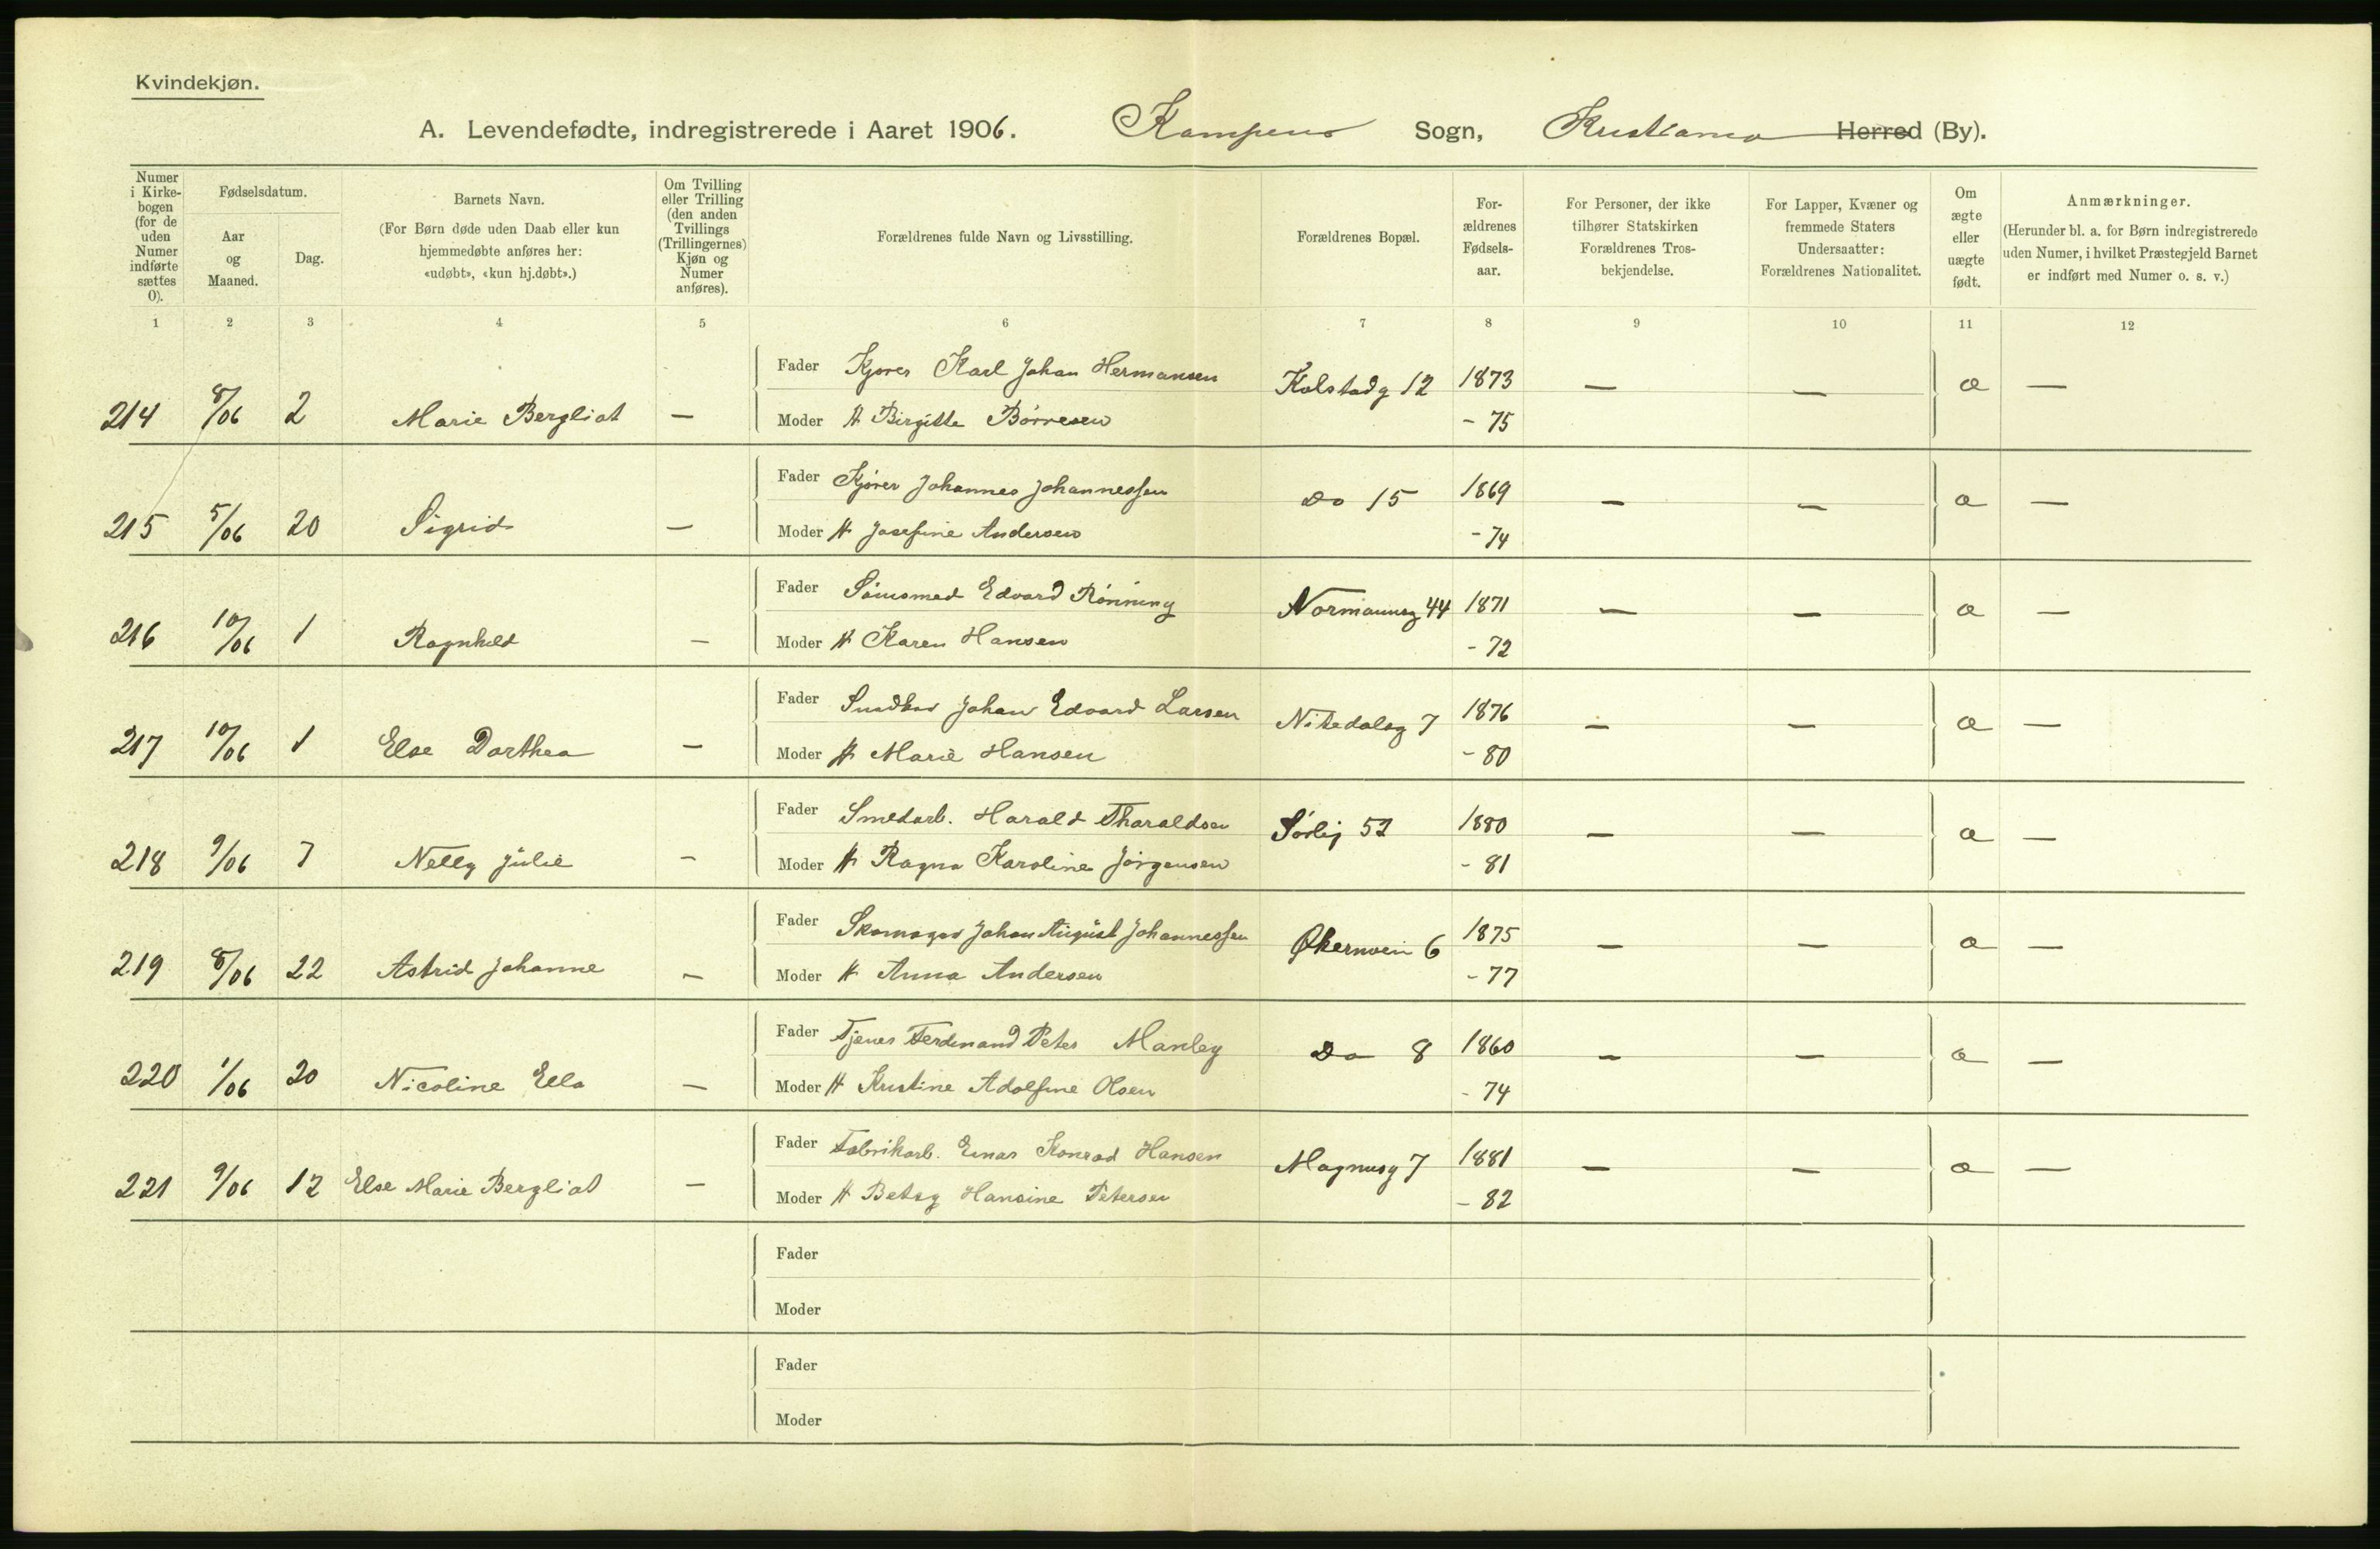 Kvindekjøn.
A. Levendefødte, indregistrerede i Aaret 1906. Kampens Sogn, Kristiania Herred (By).
Numer i Kirkebogen (for de uden Numer indførte sættes 0).
Fødselsdatum.
Aar og Maaned.
Dag.
Barnets Navn.
(For Børn døde uden Daab eller kun hjemmedøbte anføres her: «udøbt», «kun hj.døbt».)
Om Tvilling eller Trilling (den anden Tvillings (Trillingernes) Kjøn og Numer anføres).
Forældrenes fulde Navn og Livsstilling.
Forældrenes Bopæl.
Forældrenes Fødselsaar.
For Personer, der ikke tilhører Statskirken Forældrenes Trosbekjendelse.
For Lapper, Kvæner og fremmede Staters Undersaatter: Forældrenes Nationalitet.
Om ægte eller uægte født.
Anmærkninger.
(Herunder bl. a. for Børn indregistrerede uden Numer, i hvilket Præstegjeld Barnet er indført med Numer o. s. v.)
1 2 3 4 5 6 7 8 9 10 11 12
Fader Kjører Karl Johan Hermansen Kolstadg 12 1873 — — a —
214 8/06 2 Marie Bergliot — Moder H Birgitte Börresen - 75
Fader Kjører Johannes Johannessen Do 15 1869 — — a —
215 5/06 20 Sigrid — Moder H Josefine Andersen - 74
Fader Edvard Rönning Normannsg 44 1871 — — a —
216 10/06 1 Ragnhild — Moder H Karen Hansen - 72
Fader Snedker Johan Edvard Larsen Nitedalsg 7 1876 — — a —
217 10/06 1 Else Dorthea — Moder H Marie Hansen - 80
Fader Smedarb. Harald Tharaldsen Sörlig 52 1880 — — a —
218 9/06 7 Nelly Julie — Moder H Ragna Karoline Jörgensen - 81
Fader Skomager Johan August Johannessen Økernvein 6 1875 — — a —
219 8/06 22 Astrid Johanne — Moder H Anna Andersen - 77
Fader Tjener Ferdinand Peter Manley Do 8 1860 — — a —
220 1/06 20 Nicoline Ella — Moder H Kristine Adolfine Olsen - 74
Fader Fabrikarb. Einar Konrad Hansen Magnusg 7 1881 — — a —
221 9/06 12 Else Marie Bergliot — Moder H Betsy Hansine Petersen - 82
Fader
Moder
Fader
Moder